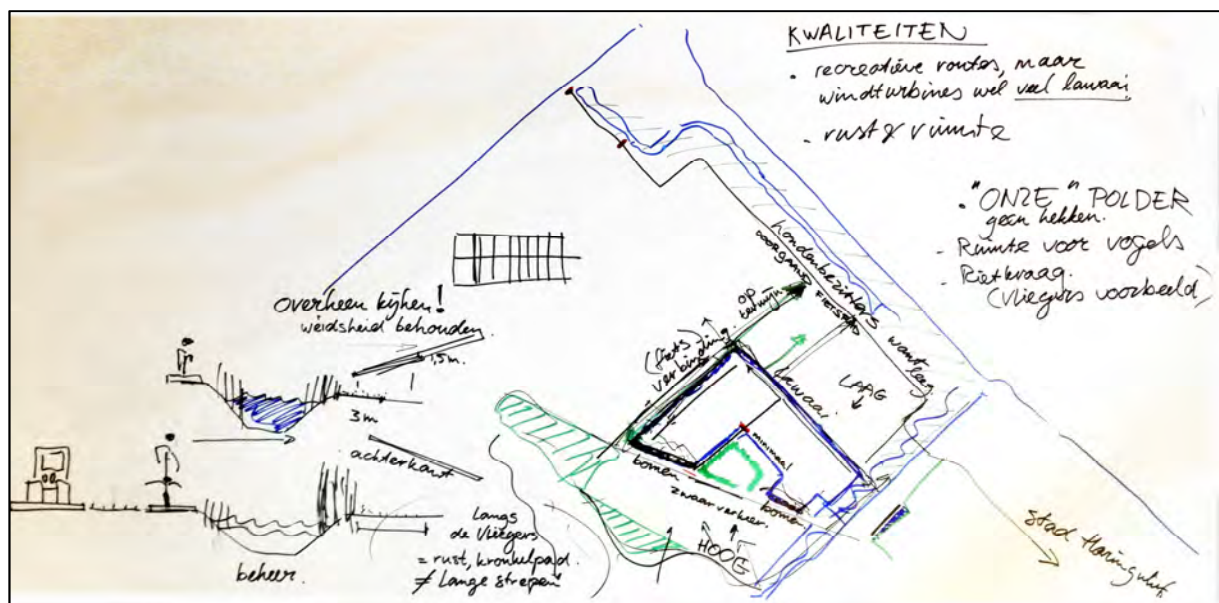 KWALITEITEN
• recreatieve routes, maar
windturbines wel veel lawaai!
- rust & ruimte
• "ONZE" POLDER
geen hekken.
- Ruimte voor vogels
- Rietkraag.
(Vliegers voorbeeld)
overheen kijken!
weidsheid behouden.
1,5m.
3m
achterkant
Langs
de Vliegers
= rust, kronkelpad.
≠ Lange strepen"
beheer.
hondenbezitters
DOORGAAND
FIETSPAD
op
termijn
(fiets)
verbinding.
zwaar.
LAAG
minimaal
bomen
zwaar verkeer.
bomen
HOOG
stad Haringvliet.